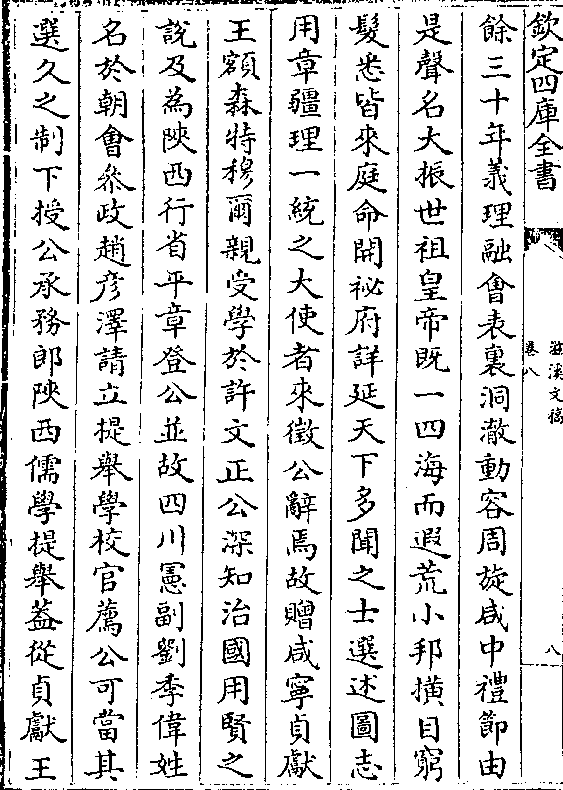 欽定四庫全書
滋溪文稿
卷八
八
餘三十年義理融會表裏洞澈動容周旋咸中禮節由
是聲名大振世祖皇帝既一四海而遐荒小邦橫目窮
髮悉皆來庭命開祕府詳延天下多聞之士選述圖志
用章疆理一統之大使者來徵公辭焉故贈咸寧貞獻
王額森特穆爾親受學於許文正公深知治國用賢之
說及為陜西行省平章登公並故四川憲副劉季偉姓
名於朝會叅政趙彦澤請立提舉學校官薦公可當其
選久之制下授公承務郎陜西儒學提舉葢從貞獻王